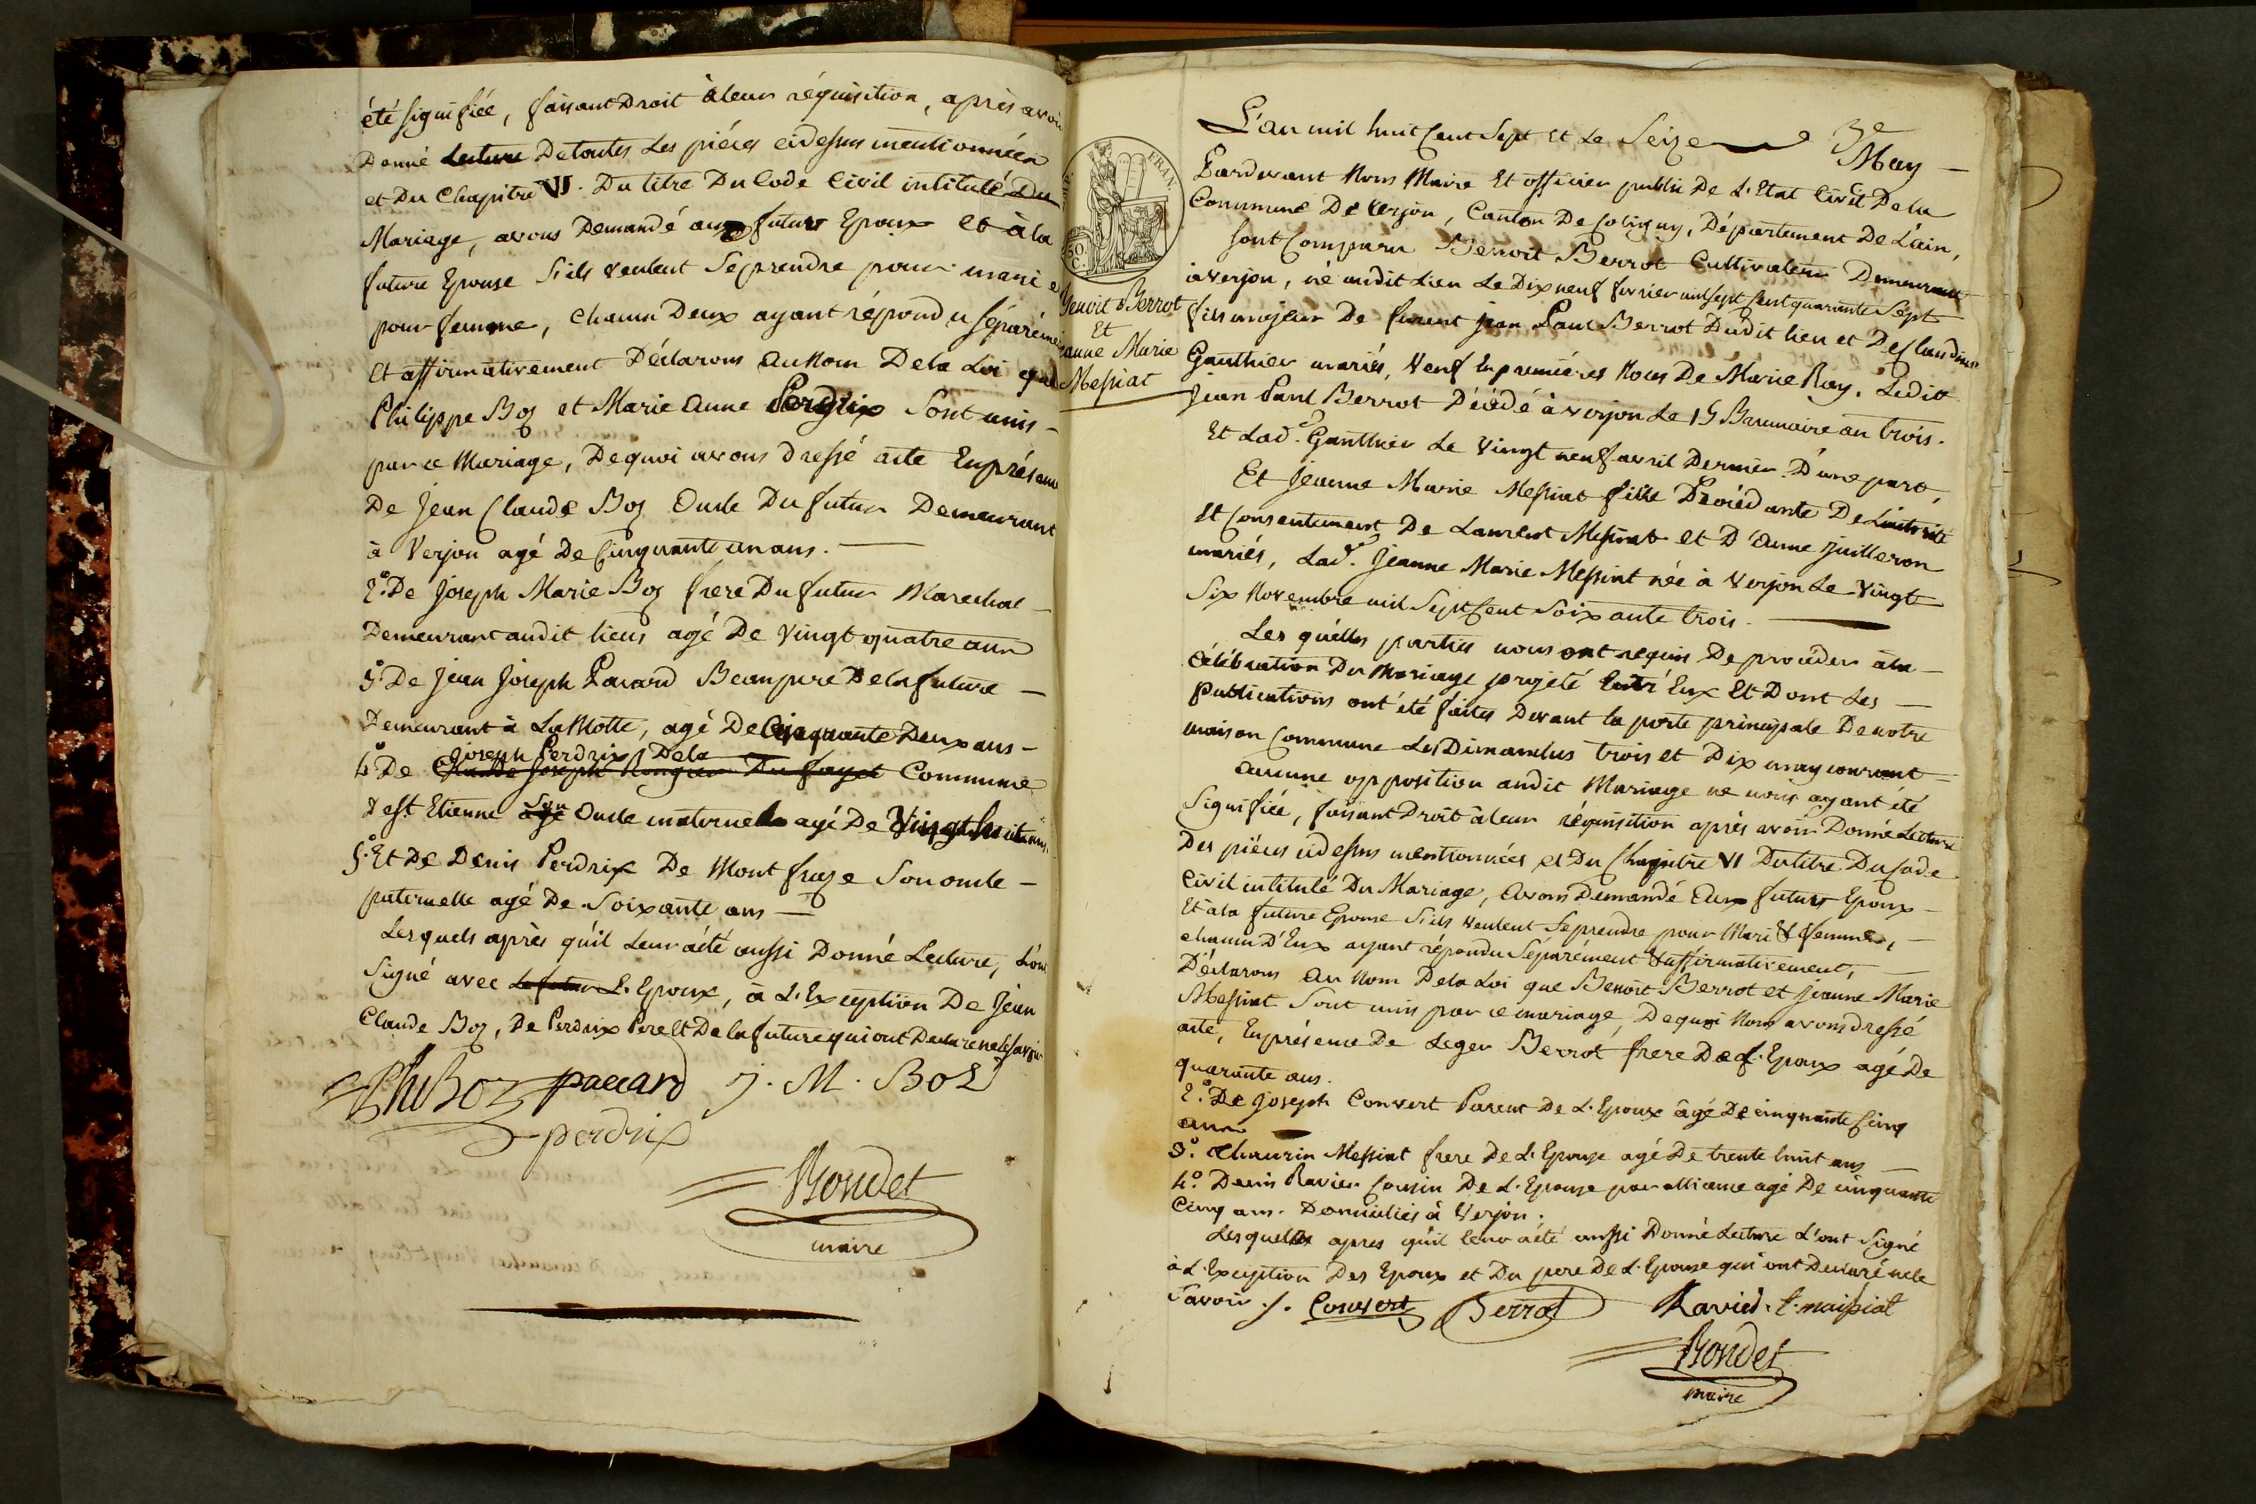 été signifiée, faisant Droit à leur réquisition, après avoir
Donné Lecture De toutes Les piéces cidessus mentionnées
et Du Chapitre VI. Du titre Du Code Civil intitulé Du
Mariage, avons Demandé aux futurs Epoux et à la
future Epouse S'ils veulent Se prendre pour mari et
pour femme, chacun Deux ayant répondu séparémen
Et affirmativement Déclarons au Nom De la Loi que
Philippe Boz et Marie Anne Perdrix Sont unis
par ce Mariage, De quoi avons dressé acte En présence
De Jean Claude Boz Oncle Du futur Demeurant
à Verjon agé De Cinquante un ans.
2.° De Joseph Marie Boz frere Du futur Marechal
Demeurant audit lieu agé De Vingt quatre ans
3.° De Jean Joseph Pacard Beaupere De la future
Demeurant à La Motte, agé De Cinquante Deux ans
joseph Perdrix De la
4.° De Claude Joseph Du fayet Commune
De St. Etienne agé Son Oncle maternel agé De Vingt huit ans.
5.° Et De Denis Perdrix De Mont fraze Son oncle
paternelle agé De Soixante ans
Les quels après qu'il Leur a été aussi Donné Lecture, L'ont
Signé avec Le futur L'Epoux, à L'Exception De Jean
Claude Boz, De Perdrix Pere Et De la future qui ont Declaré ne le Savoir
Ph Boz paccard J. M. Boz
perdrix
Bondet
maire
L'an mil huit Cent Sept et Le Seize May
3e
Pardevant Nous Maire Et officier public De L'Etat Civil De la
Commune De Verjon, Canton De Coligny, Département De L'ain,
FRAN.
Sont Comparu Benoit Berrot Cultivateur Demeurant
à Verjon, né audit Lieu Le Dix neuf fevrier mil Sept Cent quarante Sept
Benoit Berrot
Et
Jeanne Marie
Messiat
fils majeur De furent jean Paul Berrot Dudit lieu et De Claudine
Gauthier mariés, Veuf En premiéres Noces De Marie Ray. Ledit
Jean Paul Berrot Décédé à Verjon Le 15 Brumaire an trois.
Et Lad.e Gauthier Le Vingt neuf avril Dernier D'une part,
Et Jeanne Marie Messiat fille Procédante De L'autorité
et Consentement De Laurent Messiat et D'anne Juilleron
mariés, Lad.e Jeanne Marie Messiat née à Verjon Le Vingt
Six Novembre mil Sept Cent Soixante trois.
Les quelles parties nous ont requis De procéder à la
Célébration Du Mariage projeté Entr'Eux Et Dont Les
Publications ont été faites Devant la porte principale De notre
maison Commune Les Dimanches trois et Dix may courant
aucune opposition audit Mariage ne nous ayant été
Signifiée, faisant Droit à leur réquisition après avoir Donné Lecture
Des piéces cidessus mentionnées et Du Chapitre VI Du titre Du Code
Civil intitulé Du Mariage, avons Demandé aux futurs Epoux
Et à la future Epouse S'ils veulent Se prendre pour Mari & femme,
chacun D'Eux ayant répondu Séparément & affirmativement,
Déclarons au Nom De la Loi que Benoit Berrot et Jeanne Marie
Messiat Sont unis par ce mariage, De quoi Nous avons dressé
acte, En présence De Leger Berrot frere De L'Epoux agé De
quarante ans.
2.° De Joseph Convert Parent De L'Epoux âgé De cinquante Cinq
ans
3.° Messiat frere De L'Epouse agé De trente huit ans
4.° Denis Ravier Cousin De L'Epouse par alliance agé De cinquante
Cinq ans. Domiciliés à Verjon.
Lesquelles apres qu'il leur a été aussi Donné Lecture L'ont Signé
à L'Exception Des Epoux et Du pere De L'Epouse qui ont Declaré ne le
Savoir ./. Convert Berrot Ravier t. maissiat
Bondet
maire